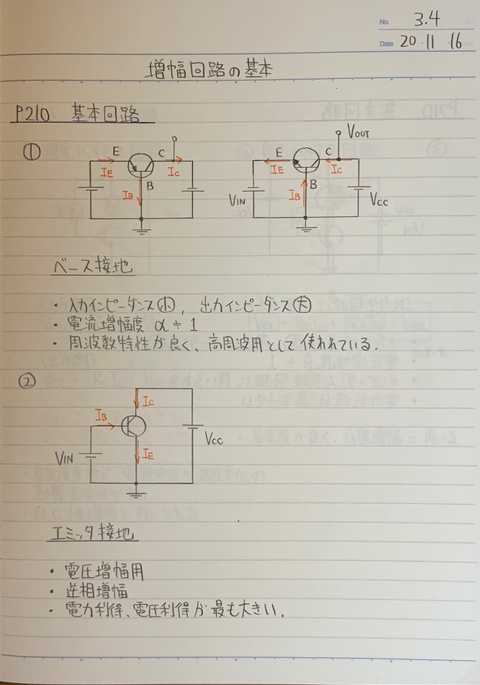 No. 3.4
Date 20・11・16
増幅回路の基本
P210 基本回路
①
E C
IE IC
B
IB
VOUT
E C
IE IC
B
IB
VIN VCC
ベース接地
・入力インピーダンス小, 出力インピーダンス大
・電流増幅度 α ≒ 1
・周波数特性が良く、高周波用として使われている.
②
IC
IB
IE
VIN VCC
エミッタ接地
・電圧増幅用
・逆相増幅
・電力利得、電圧利得が最も大きい.